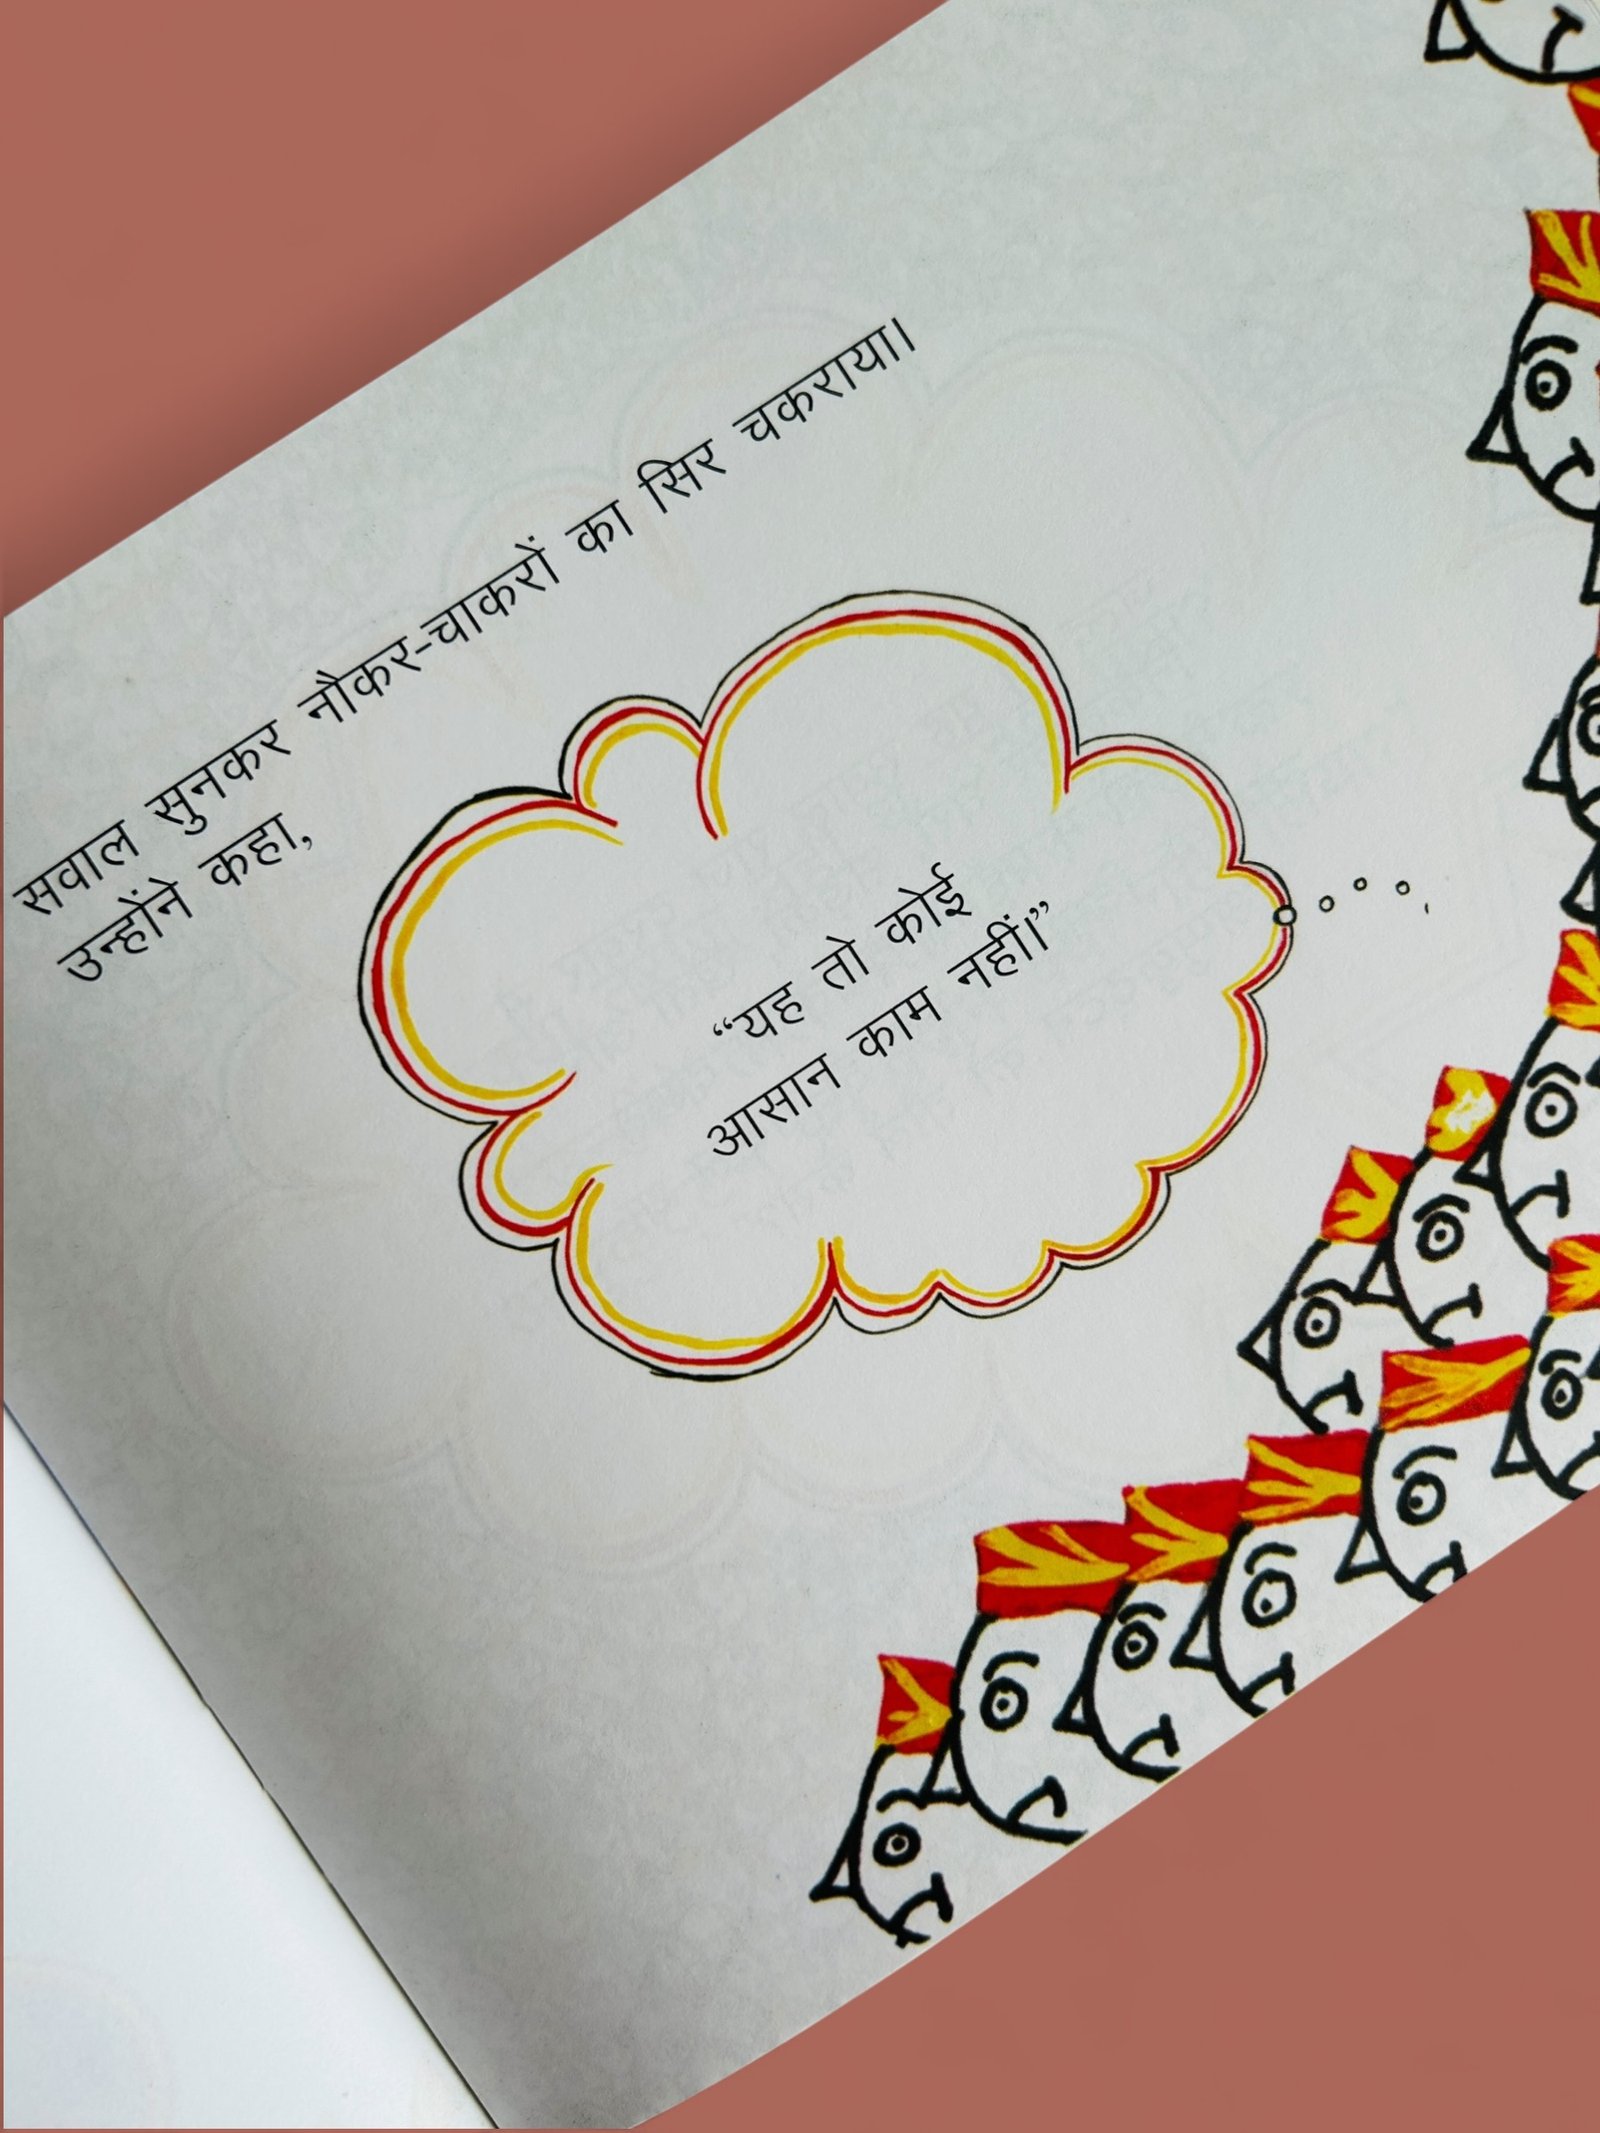 सवाल सुनकर नौकर-चाकरों का सिर चकराया।
उन्होंने कहा,
“यह तो कोई
आसान काम नहीं।”